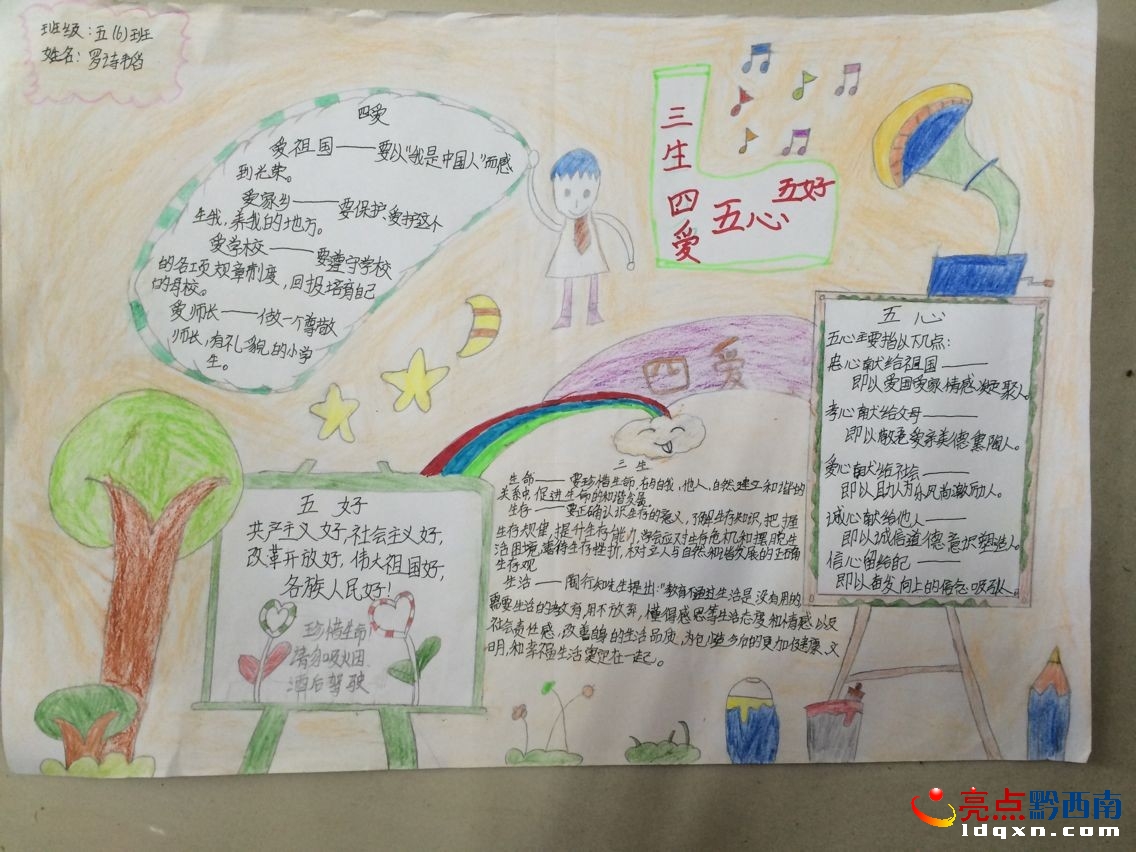 班级：五(6)班
姓名：罗诗韬
四爱
爱祖国——要以“我是中国人”而感
到光荣。
爱家乡——要保护、爱护这个
生我，养我的地方。
爱学校——要遵守学校
的各项规章制度，回报培育自己
的母校。
爱师长——做一个尊敬
师长，有礼貌的小学
生。
三生四爱五心五好
五心
五心主要指以下几点：
忠心献给祖国——
即以爱国爱家情感凝聚人。
孝心献给父母——
即以敬老爱亲美德熏陶人。
爱心献给社会——
即以助人为乐风尚激励人。
诚心献给他人——
即以诚信道德意识塑造人。
信心留给自己——
即以奋发向上的信念吸引人。
四爱
五好
共产主义好，社会主义好，
改革开放好，伟大祖国好，
各族人民好！
珍惜生命
请勿吸烟
酒后驾驶
三生
生命——要珍惜生命，在与自我，他人，自然建立和谐的
关系中，促进生命的和谐发展。
生存——要正确认识生存的意义，了解生存知识，把握
生存规律，提升生存能力，学会应对生存危机和摆脱生
活困境，善待生存挫折，树立人与自然和谐发展的正确
生存观
生活——陶行知先生提出：“教育不通过生活是没有用的
需要生活的教育，用不放弃，懂得感恩等生活态度和情感以及
社会责任感，改善自身的生活品质，为
明，和幸福生活实现在一起。
亮点黔西南
ldqxn.com